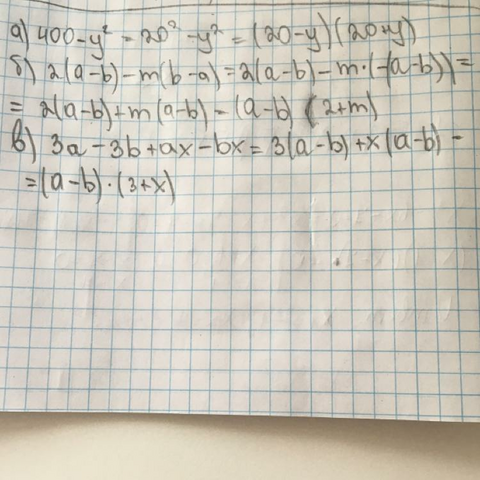 а) 400-y² = 20² -y² = (20-y)(20+y)
б) 2(a-b)-m(b-a)=2(a-b)-m·(-(a-b))=
= 2(a-b)+m(a-b)=(a-b) (2+m)
в) 3a-3b+ax-bx=3(a-b)+x(a-b) =
=(a-b)·(3+x)